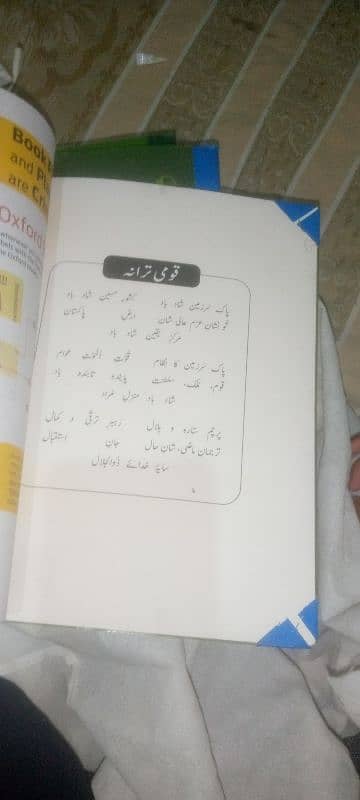 Book
and
are
Oxford
قومی ترانہ
پاک سرزمین شاد باد کشور حسین شاد باد
تو نشان عزم عالی شان ارض پاکستان
مرکز یقین شاد باد
پاک سرزمین کا نظام قوت اخوت عوام
قوم، ملک، سلطنت پائندہ تابندہ باد
شاد باد منزل مراد
پرچم ستارہ و ہلال رہبر ترقی و کمال
ترجمان ماضی، شان حال جان استقبال
سایۂ خدائے ذوالجلال